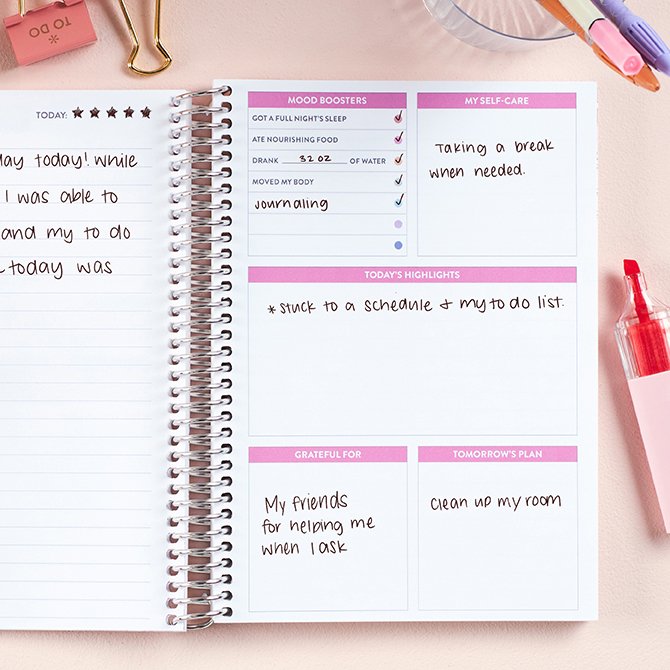 TO DO
TODAY: ★★★★★
day today! While
I was able to
and my to do
today was
MOOD BOOSTERS
GOT A FULL NIGHT'S SLEEP
ATE NOURISHING FOOD
DRANK 32 OZ OF WATER
MOVED MY BODY
Journaling
MY SELF-CARE
Taking a break
when needed.
TODAY'S HIGHLIGHTS
*Stuck to a schedule + my to do list.
GRATEFUL FOR
My friends
for helping me
when I ask
TOMORROW'S PLAN
Clean up my room